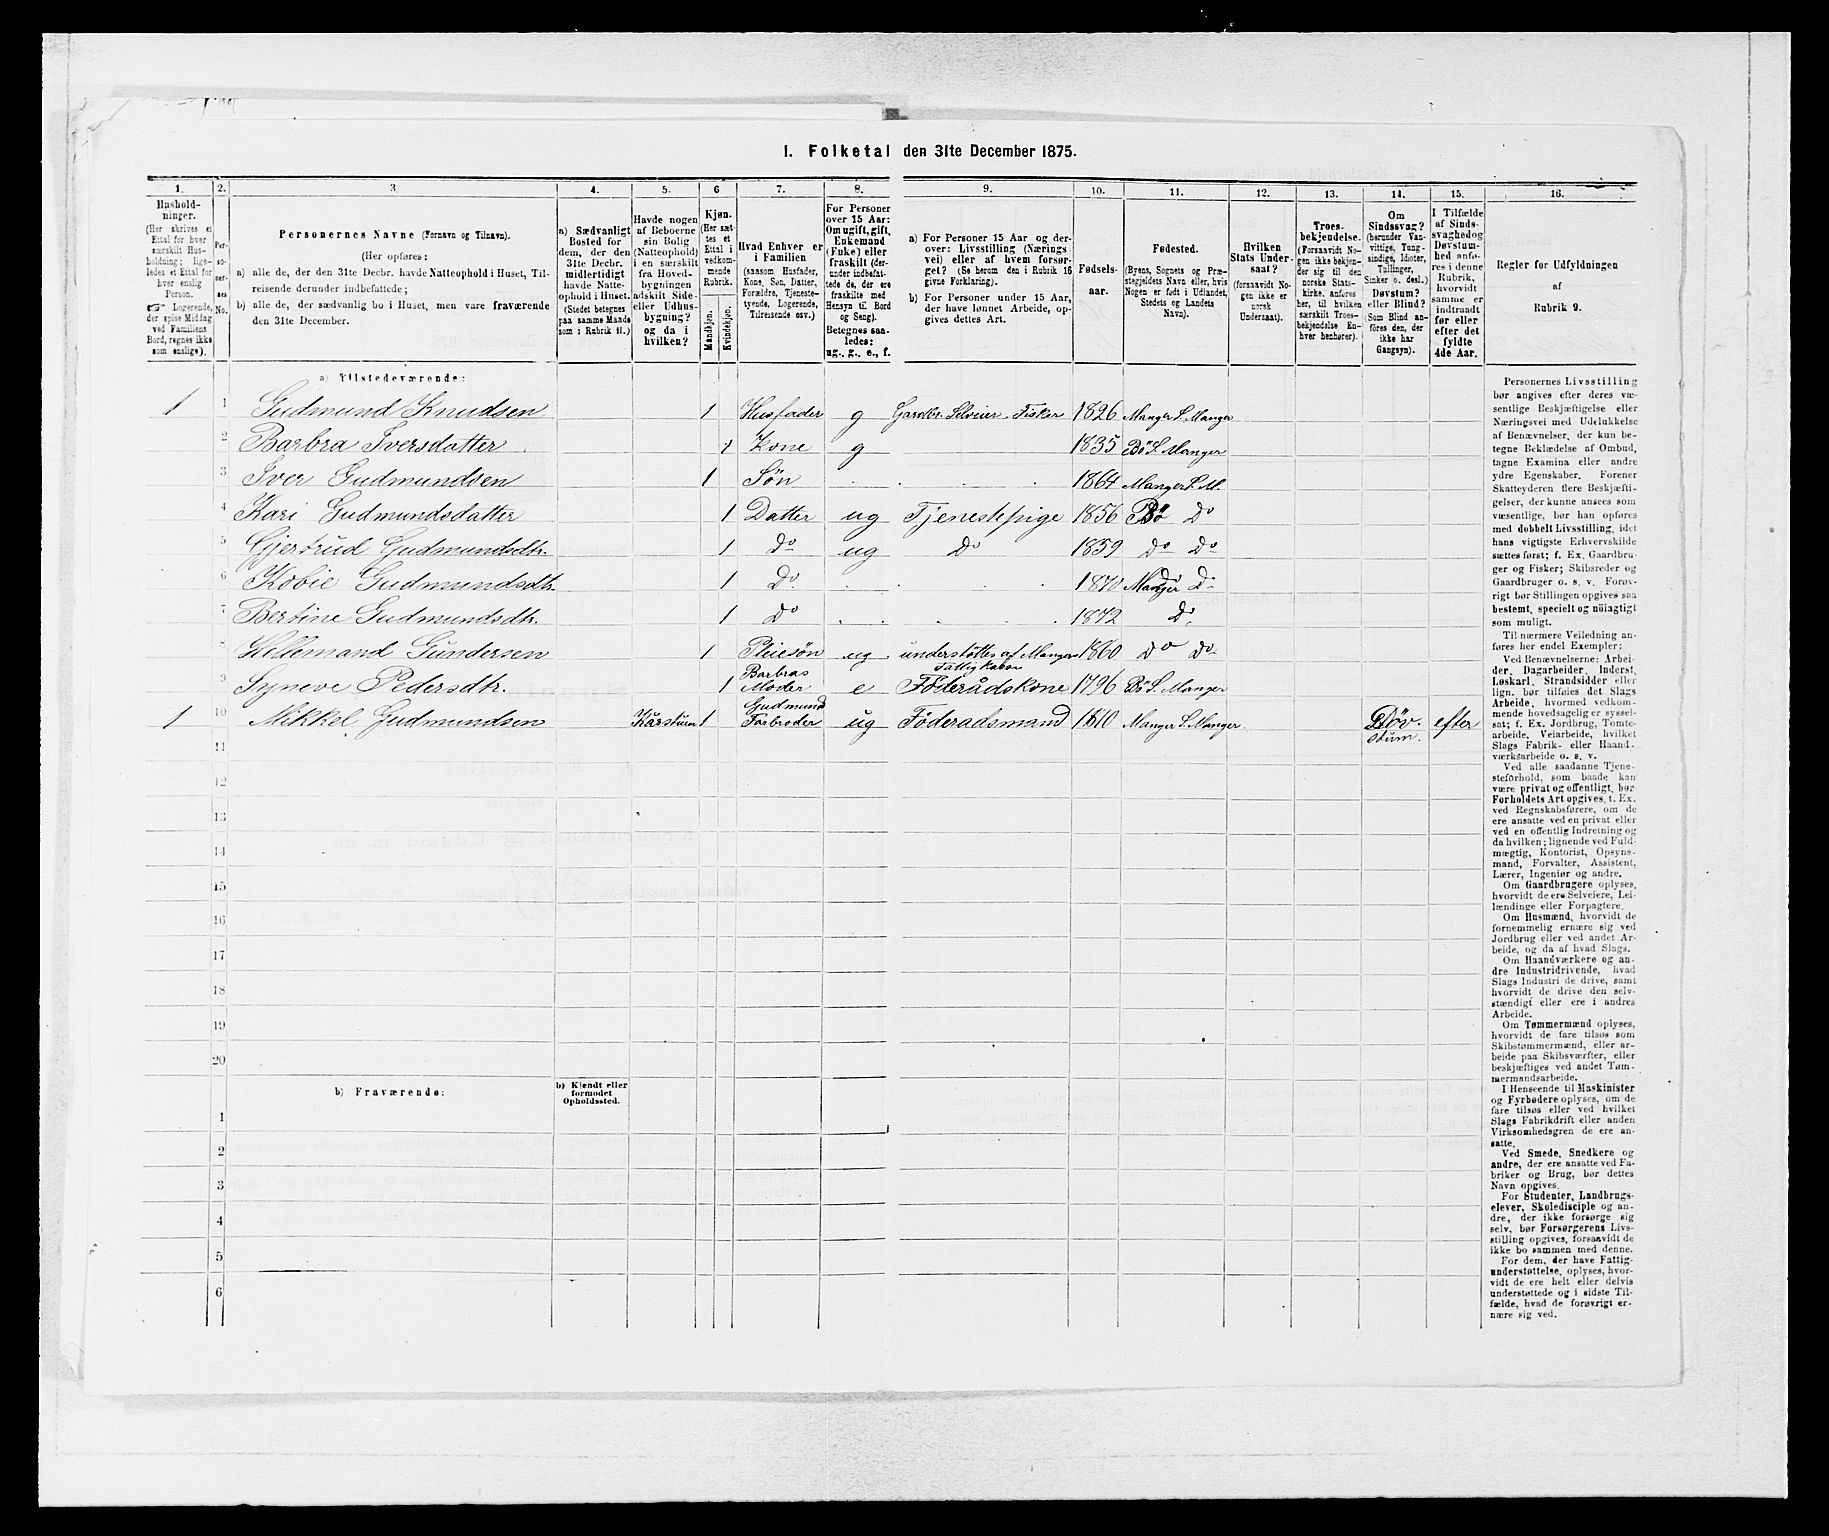 I. Folketal den 31te December 1875.
1. 2. 3. 4. 5. 6 7. 8. 9. 10. 11. 12. 13. 14. 15. 16.
Hushold-
ninger.
(Her skrives et
Ettal for hver
særskilt Hus-
holdning; lige-
ledes et Ettal for
hver enslig
Person.
☞ Logerende,
der spise Middag
ved Familiens
Bord, regnes ikke
som enslige).
Per-
so-
ner-
nes
No.
Personernes Navne (Fornavn og Tilnavn).
(Her opføres:
a) alle de, der den 31te Decbr. havde Natteophold i Huset, Til-
reisende derunder indbefattede;
b) alle de, der sædvanlig bo i Huset, men vare fraværende
den 31te December.
a) Sædvanligt
Bosted for
dem, der den
31te Decbr.
midlertidigt
havde Natte-
ophold i Huset.
(Stedet betegnes
paa samme Maade
som i Rubrik 11.)
Havde nogen
af Beboerne
sin Bolig
(Natteophold)
i en særskilt
fra Hoved-
bygningen
adskilt Side-
eller Udhus-
bygning?
og da i
hvilken?
Kjøn.
(Her sæt-
tes et
Ettal i
vedkom-
mende
Rubrik.
Mandkjøn.
Kvindekjøn.
Hvad Enhver er
i Familien
(saasom Husfader,
Kone, Søn, Datter,
Forældre, Tjeneste-
tyende, Logerende,
Tilreisende osv.)
For Personer
over 15 Aar:
Om ugift, gift,
Enkemand
(Enke) eller
fraskilt (der-
under indbefat-
tede de, der ere
fraskilte med
Hensyn til Bord
og Seng).
Betegnes saa-
ledes:
ug., g., e., f.
a) For Personer 15 Aar og der-
over: Livsstilling (Nærings-
vei) eller af hvem forsør-
get? (Se herom den i Rubrik 16
givne Forklaring).
b) For Personer under 15 Aar,
der have lønnet Arbeide, op-
gives dettes Art.
Fødsels-
aar.
Fødested.
(Byens, Sognets og Præ-
stegjeldets Navn eller, hvis
Nogen er født i Udlandet,
Stedets og Landets
Navn).
Hvilken
Stats Under-
saat?
(forsaavidt No-
gen ikke er
norsk
Undersaat).
Troes-
bekjendelse.
(Forsaavidt No-
gen ikke bekjen-
der sig til den
norske Stats-
kirke, anføres
her, til hvilken
særskilt Troes-
bekjendelse En-
hver henhører).
Om
Sindssvag?
(herunder Van-
vittige, Tung-
sindige, Idioter,
Tullinger,
Sinker o. desl.)
Døvstum?
eller Blind?
(Som Blind an-
føres den, der
ikke har
Gangsyn).
I Tilfælde
af Sinds-
svaghed og
Døvstum-
hed anfø-
res i denne
Rubrik,
hvorvidt
samme er
indtraadt
før eller
efter det
fyldte
4de Aar.
Regler for Udfyldningen
af
Rubrik 9.
a) Tilstedeværende:
1 1 Gudmund Knudsen 1 Husfader g Gardbr. Selveier. Fisker 1826 Manger S. Manger
2 Barbra Iversdatter 1 Kone g 1835 Bö S. Manger
3 Iver Gudmundsen 1 Søn 1864 Manger S. M.
4 Kari Gudmundsdatter 1 Datter ug Tjenestepige 1856 Bö Do
5 Gjertrud Gudmundsdtr. 1 Do ug Do 1859 Do Do
6 Gudmundsdtr. 1 Do 1870 Manger D.
7 Bertine Gudmundsdtr. 1 Do 1872 D.
8 Hellemand Gundersen 1 Pleiesøn ug understöttes af Manger Fattigkasse 1860 Do Do
9 Syneve Pedersdtr. 1 Barbras Moder e Föderådskone 1796 Bö S. Manger
1 10 Mikkel Gudmundsen Kårstun 1 Gudmund Farbroder ug Föderadsmand 1810 Manger S. Manger Döv- stum. efter
11
12
13
14
15
16
17
18
19
20
b) Fraværende:
b) Kjendt eller
formodet
Opholdssted.
1
2
3
4
5
6
Personernes Livsstilling
bør angives efter deres væ-
sentlige Beskjæftigelse eller
Næringsvei med Udelukkelse
af Benævnelser, der kun be-
tegne Beklædelse af Ombud,
tagne Examina eller andre
ydre Egenskaber. Forener
Skatteyderen flere Beskjæfti-
gelser, der kunne ansees som
væsentlige, bør han opføres
med dobbelt Livsstilling, idet
hans vigtigste Erhvervskilde
sættes først; f. Ex. Gaardbru-
ger og Fisker; Skibsreder og
Gaardbruger o. s. v. Forøv-
rigt bør Stillingen opgives saa
bestemt, specielt og nöiagtigt
som muligt.
Til nærmere Veiledning an-
føres her endel Exempler:
Ved Benævnelserne: Arbei-
der, Dagarbeider, Inderst,
Løskarl, Strandsidder eller
lign. bør tilføies det Slags
Arbeide, hvormed vedkom-
mende hovedsagelig er syssel-
sat; f. Ex. Jordbrug, Tomte-
arbeide, Veiarbeide, hvilket
Slags Fabrik- eller Haand-
værksarbeide o. s. v.
Ved alle saadanne Tjene-
steforhold, som baade kan
være privat og offentligt, bør
Forholdets Art opgives, t. Ex.
ved Regnskabsførere, om de
ere ansatte ved en privat eller
ved en offentlig Indretning og
da hvilken; lignende ved Fuld-
mægtig, Kontorist, Opsyns-
mand, Forvalter, Assistent,
Lærer, Ingeniør og andre.
Om Gaardbrugere oplyses,
hvorvidt de ere Selveiere, Lei-
lændinge eller Forpagtere.
Om Husmænd, hvorvidt de
fornemmelig ernære sig ved
Jordbrug eller ved andet Ar-
beide, og da af hvad Slags.
Om Haandværkere og an-
dre Industridrivende, hvad
Slags Industri de drive, samt
hvorvidt de drive den selv-
stændigt eller ere i andres
Arbeide.
Om Tømmermænd oplyses,
hvorvidt de fare tilsøs som
Skibstømmermænd, eller ar-
beide paa Skibsværfter, eller
beskjæftiges ved andet Tøm-
mermandsarbeide.
I Henseende til Maskinister
og Fyrbødere oplyses, om de
fare tilsøs eller ved hvilket
Slags Fabrikdrift eller anden
Virksomhedsgren de ere an-
satte.
Ved Smede, Snedkere og
andre, der ere ansatte ved Fa-
briker og Brug, bør dettes
Navn opgives.
For Studenter, Landbrugs-
elever, Skoledisciple og an-
dre, der ikke forsørge sig
selv, bør Forsørgerens Livs-
stilling opgives, forsaavidt de
ikke bo sammen med denne.
For dem, der have Fattig-
understøttelse, oplyses, hvor-
vidt de ere helt eller delvis
understøttede og i sidste Til-
fælde, hvad de forøvrigt er-
nære sig ved.